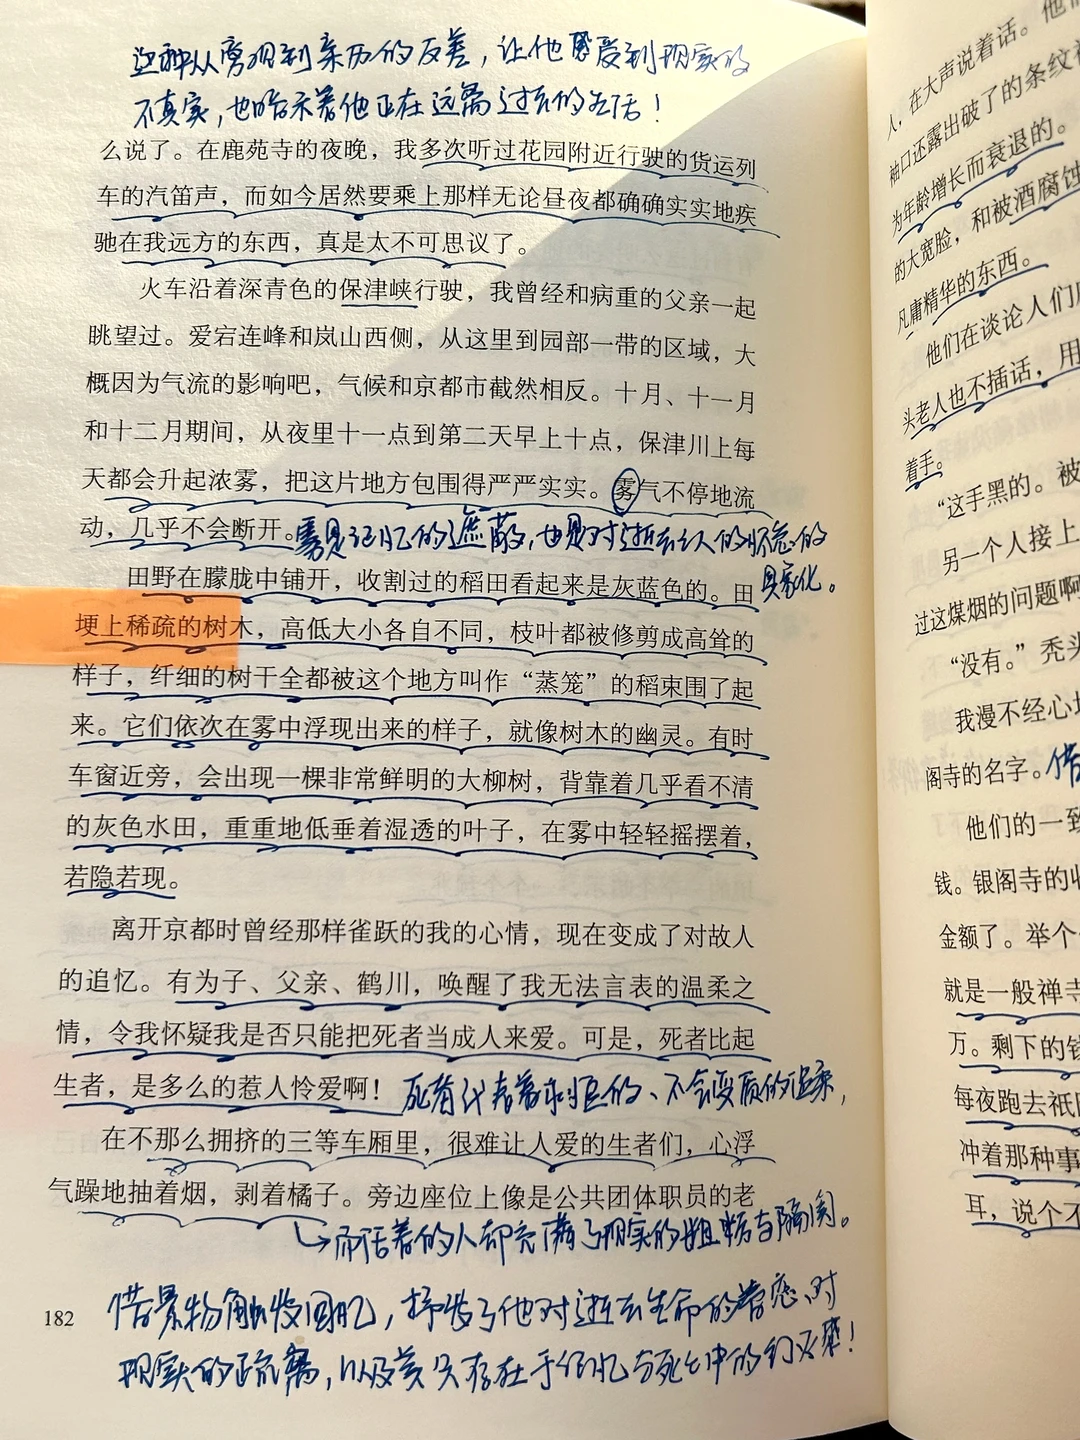 这种从旁观到亲历的反差，让他感受到现实的
不真实，也暗示着他正在远离过去的生活！
么说了。在鹿苑寺的夜晚，我多次听过花园附近行驶的货运列
车的汽笛声，而如今居然要乘上那样无论昼夜都确确实实地疾
驰在我远方的东西，真是太不可思议了。
火车沿着深青色的保津峡行驶，我曾经和病重的父亲一起
眺望过。爱宕连峰和岚山西侧，从这里到园部一带的区域，大
概因为气流的影响吧，气候和京都市截然相反。十月、十一月
和十二月期间，从夜里十一点到第二天早上十点，保津川上每
天都会升起浓雾，把这片地方包围得严严实实。雾气不停地流
动，几乎不会断开。雾是记忆的遮蔽，也是对逝去之人的怀念的
具象化。
田野在朦胧中铺开，收割过的稻田看起来是灰蓝色的。田
埂上稀疏的树木，高低大小各自不同，枝叶都被修剪成高耸的
样子，纤细的树干全都被这个地方叫作“蒸笼”的稻束围了起
来。它们依次在雾中浮现出来的样子，就像树木的幽灵。有时
车窗近旁，会出现一棵非常鲜明的大柳树，背靠着几乎看不清
的灰色水田，重重地低垂着湿透的叶子，在雾中轻轻摇摆着，
若隐若现。
离开京都时曾经那样雀跃的我的心情，现在变成了对故人
的追忆。有为子、父亲、鹤川，唤醒了我无法言表的温柔之
情，令我怀疑我是否只能把死者当成人来爱。可是，死者比起
生者，是多么的惹人怜爱啊！死者代表着永恒的、不会变质的温柔，
在不那么拥挤的三等车厢里，很难让人爱的生者们，心浮
气躁地抽着烟，剥着橘子。旁边座位上像是公共团体职员的老
而活着的人却充满了现实的粗糙与隔阂。
182
借景物触发回忆，抒发了他对逝去生命的眷恋、对
现实的疏离，以及美只存在于记忆与死亡中的幻灭感！
人，在大声说着话。他们
袖口还露出破了的条纹
为年龄增长而衰退的。
的大宽脸，和被酒腐蚀
凡庸精华的东西。
他们在谈论人们
头老人也不插话，用
着手。
“这手黑的。被
另一个人接上
过这煤烟的问题啊
“没有。”秃头
我漫不经心地
阁寺的名字。借
他们的一致
钱。银阁寺的收
金额了。举个
就是一般禅寺
万。剩下的钱
每夜跑去祇园
冲着那种事
耳，说个不